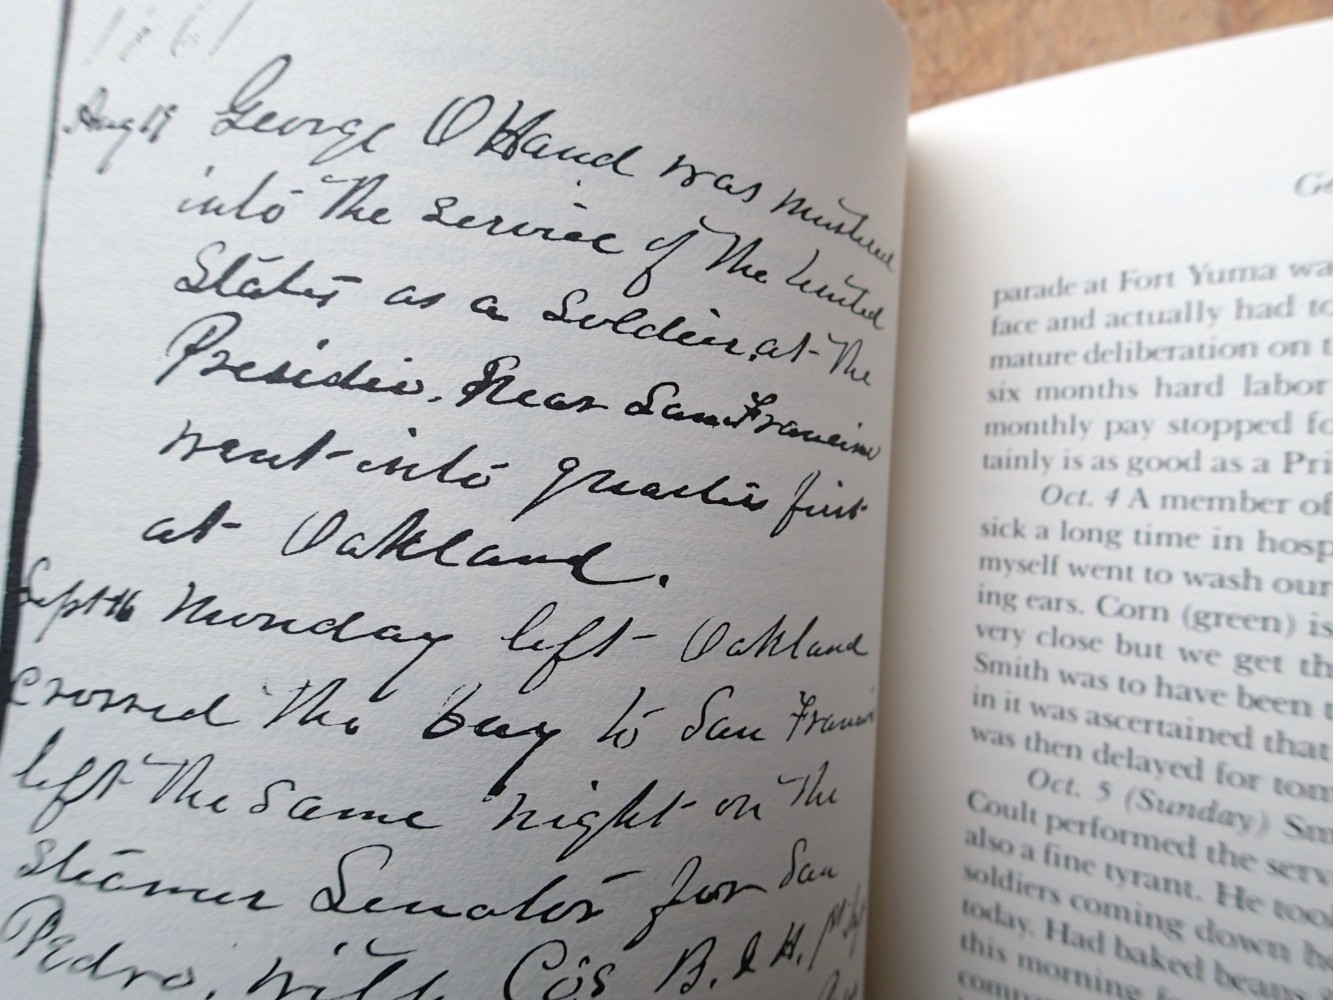 Aug 19 George O Hand was mustered
into the service of the United
States as a Soldier, at the
Presidio, Near San Francisco
went into quarters first
at Oakland.
Sept 16 Monday left Oakland
crossed the bay to San Francis
left the same night on the
steamer Senator for San
Pedro, with Cos B. & H. 1st
Ge
parade at Fort Yuma wa
face and actually had to
mature deliberation on t
six months hard labor
monthly pay stopped fo
tainly is as good as a Pri
Oct. 4 A member of
sick a long time in hosp
myself went to wash our
ing ears. Corn (green) is
very close but we get th
Smith was to have been t
in it was ascertained that
was then delayed for tom
Oct. 5 (Sunday) Sm
Coult performed the serv
also a fine tyrant. He too
soldiers coming down he
today. Had baked beans
this morning
compa